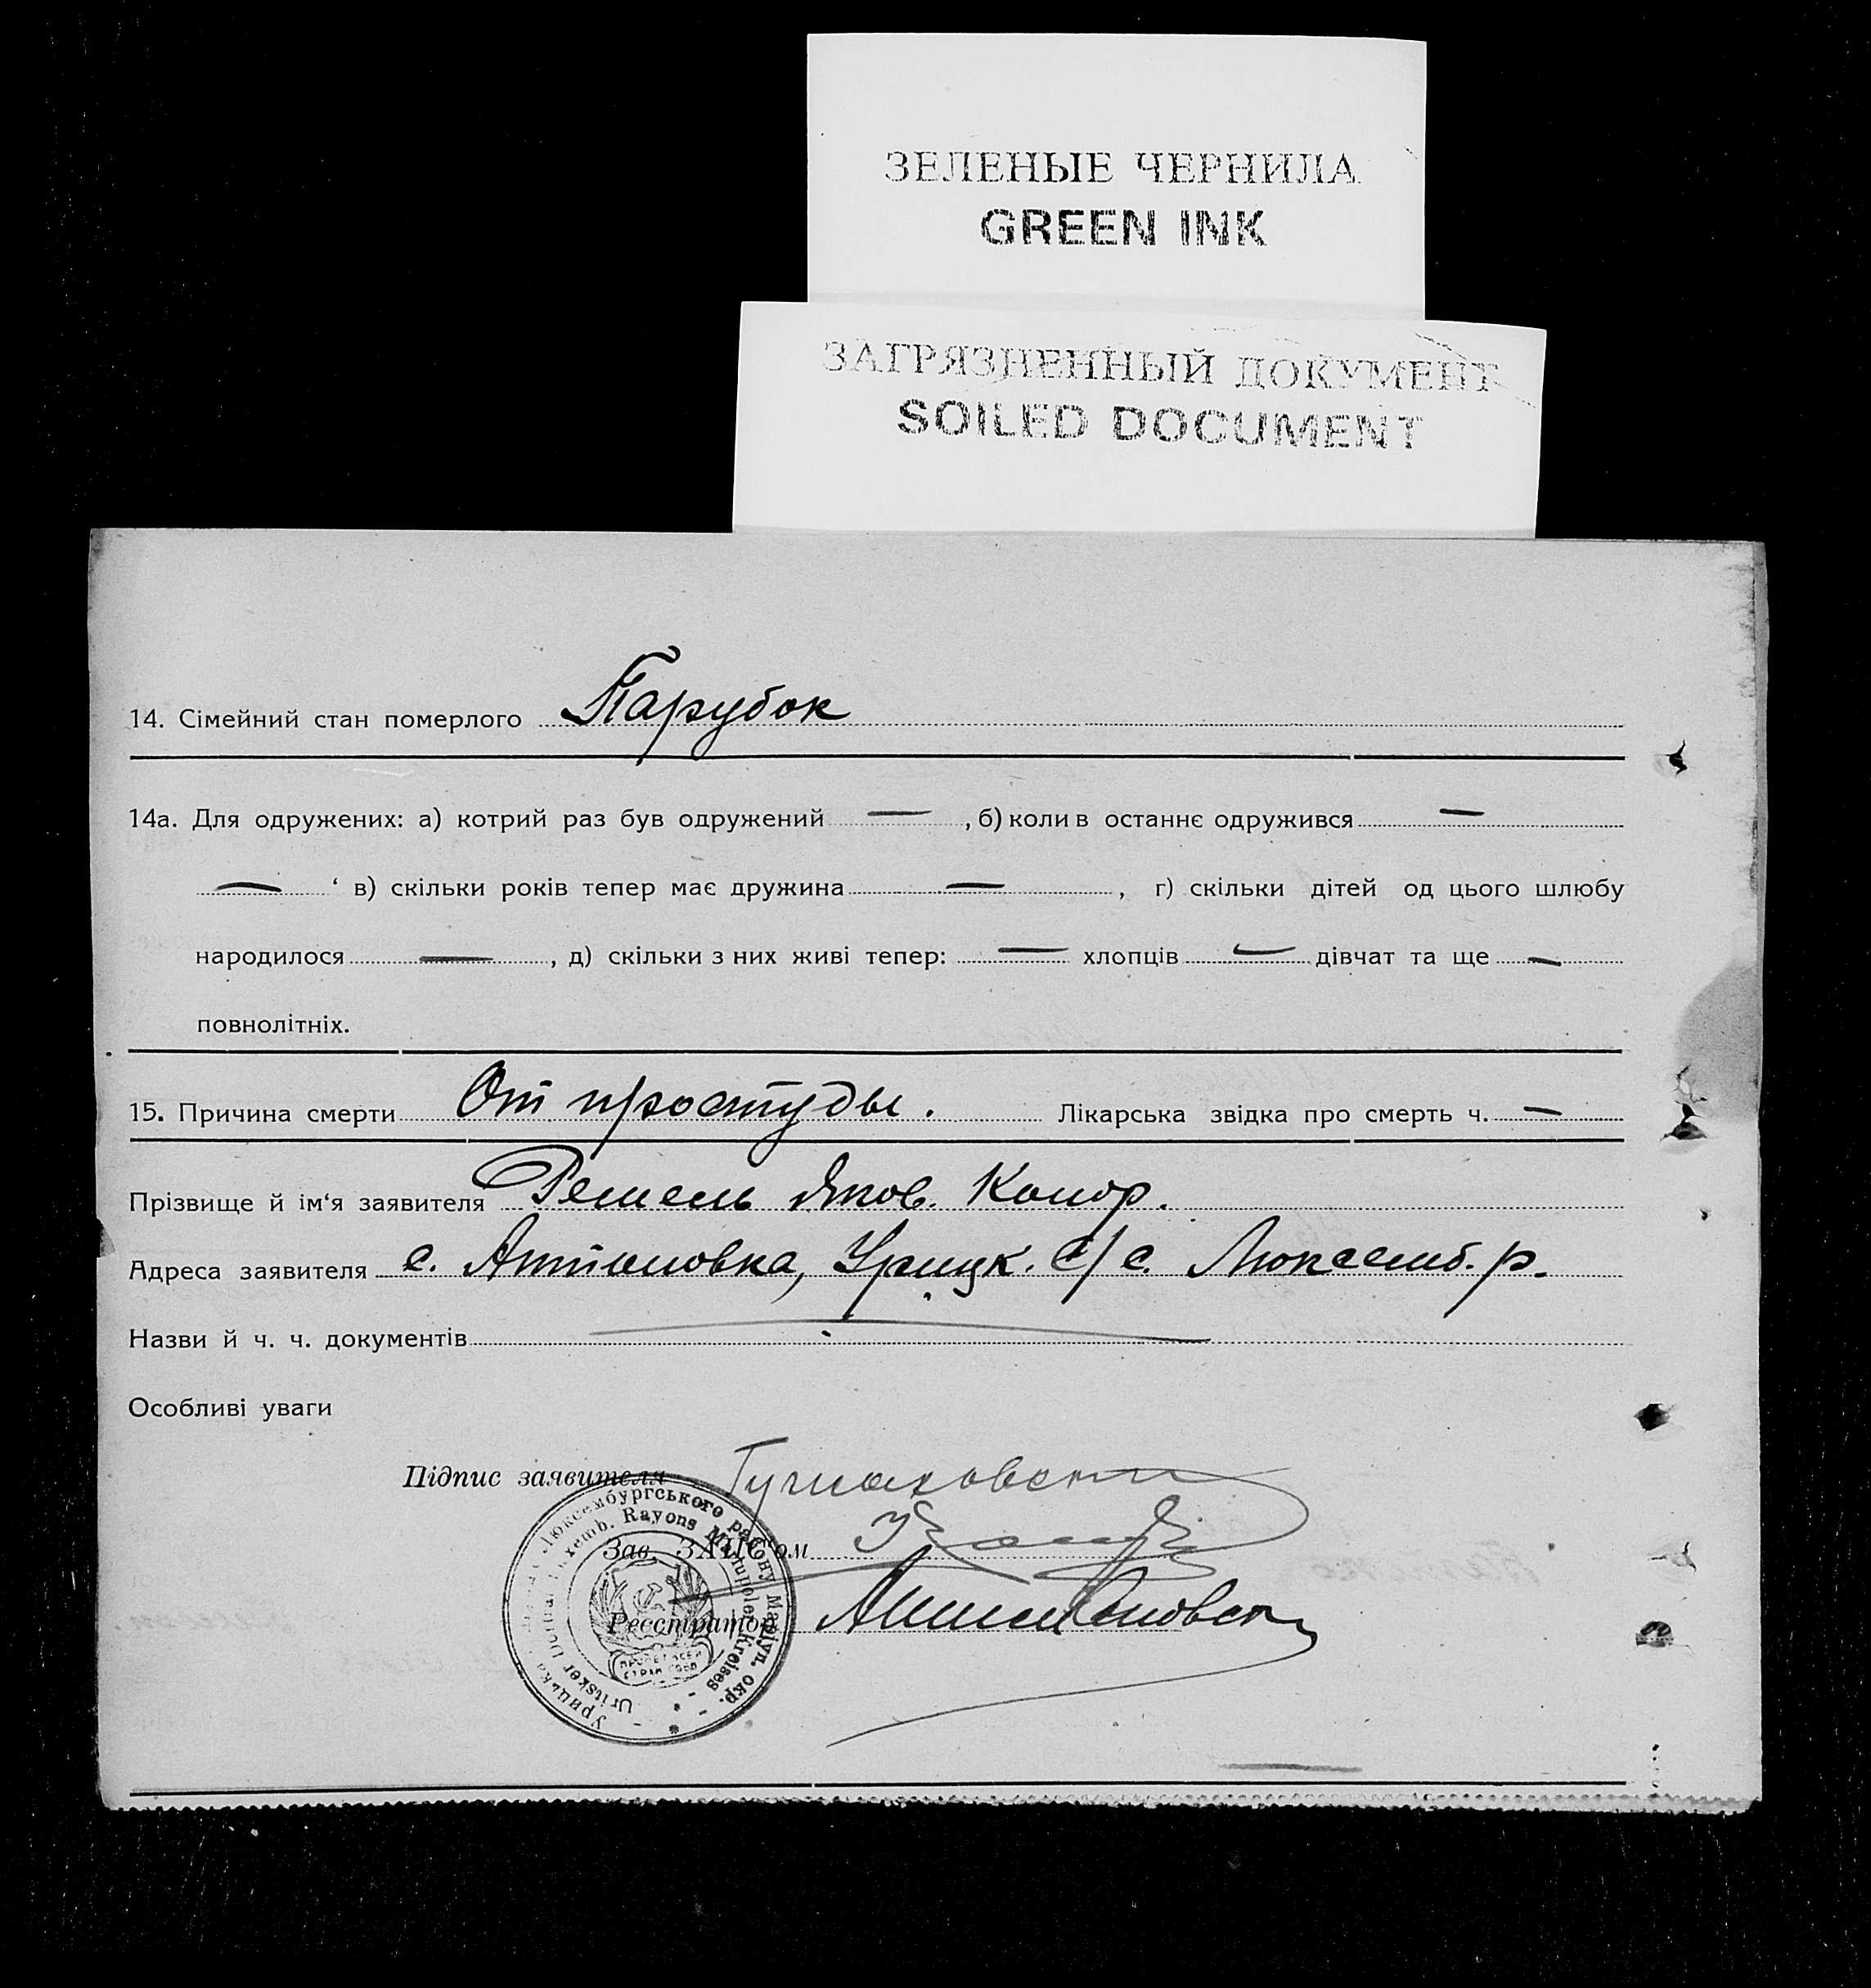 ЗЕЛЕНЫЕ ЧЕРНИЛА
GREEN INK
ЗАГРЯЗНЕННЫЙ ДОКУМЕНТ
SOILED DOCUMENT
14. Сімейний стан померлого Парубок
14а. Для одружених: а) котрий раз був одружений — , б) коли в останнє одружився —
— ‘ в) скільки років тепер має дружина — , г) скільки дітей од цього шлюбу
народилося — , д) скільки з них живі тепер: — хлопців — дівчат та ще —
повнолітніх.
15. Причина смерти От простуды. Лікарська звідка про смерть ч. —
Прізвище й ім‘я заявителя Яков.
Адреса заявителя с. Антоновка, Урицк. с/с. Люксемб. р.
Назви й ч. ч. документів
Особливі уваги
Підпис заявителя
Зав. ЗАГС‘ом
Реєстратор
Люксембургського району Маріуп. окр.
Rayons Mariupoler Kreises